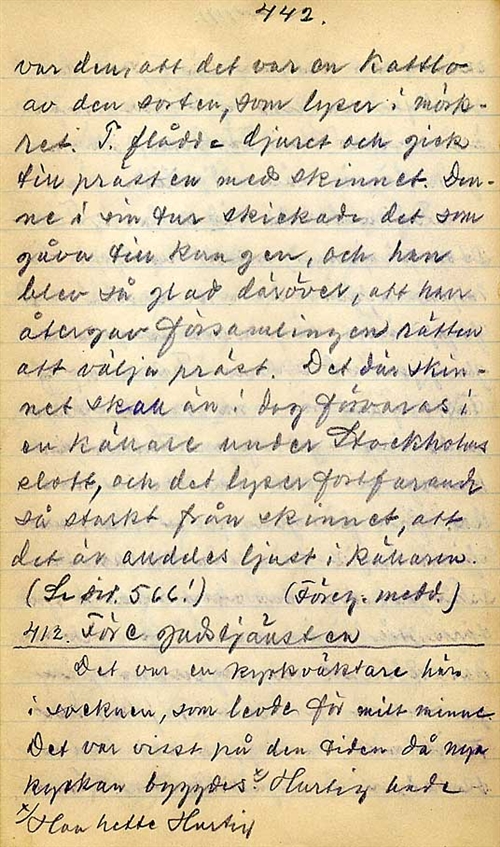 442.
var den, att det var en kattlo
av den sorten, som lyser i mörk-
ret. T. flådde djuret och gick
till prästen med skinnet. Den-
ne i sin tur skickade det som
gåva till kungen, och han
blev så glad däröver, att han
återgav församlingen rätten
att välja präst. Det där skin-
net skall än i dag förvaras i
en källare under Stockholms
slott, och det lyser fortfarande
så starkt från skinnet, att
det är alldeles ljust i källaren.
(Se sid. 566!) (Föreg. medd.)
412. Före gudstjänsten
Det var en kyrkväktare här
i socknen, som levde för mitt minne.
Det var visst på den tiden då nya
kyrkan byggdes. x/ Hurtig hade
x/ Han hette Hurtig